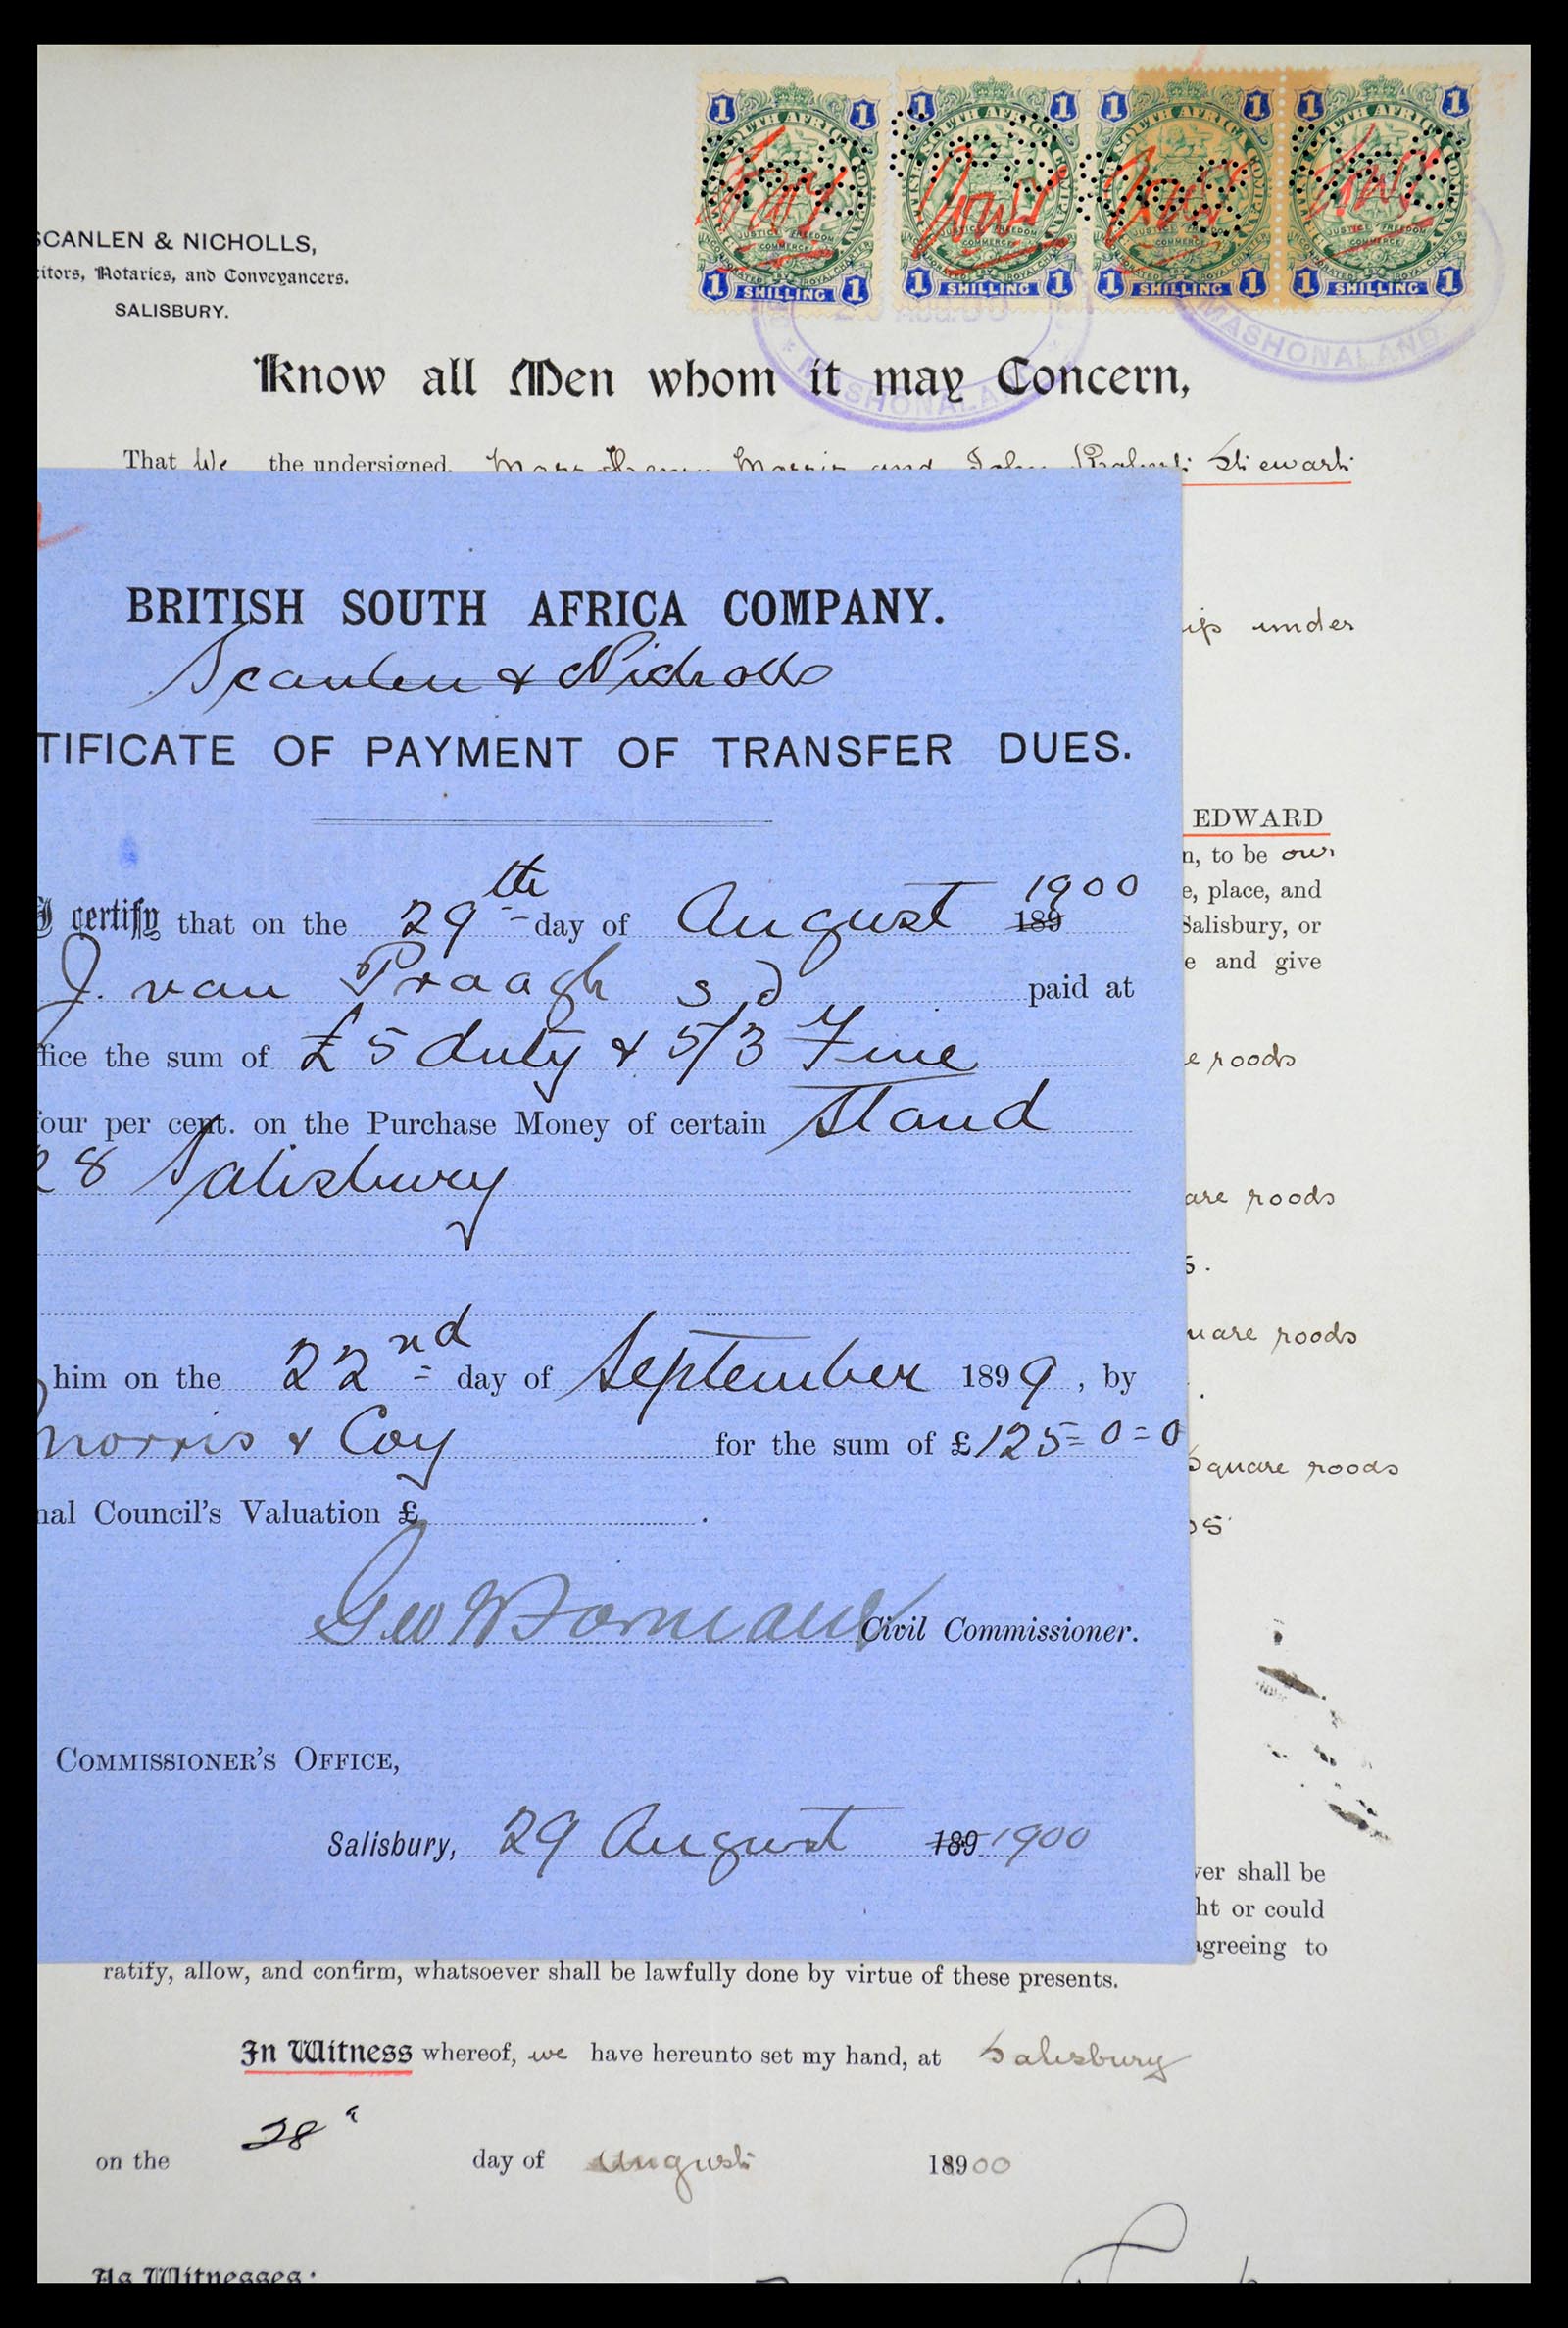 1 1 1 1 1 1 1 1
SOUTH AFRICA COMPANY
JUSTICE FREEDOM
COMMERCE
INCORPORATED BY ROYAL CHARTER
1 SHILLING 1 1 SHILLING 1 1 SHILLING 1 1 SHILLING 1
MASHONALAND MASHONALAND
SCANLEN & NICHOLLS,
itors, Notaries, and Conveyancers.
SALISBURY.
Know all Men whom it may Concern,
That We the undersigned, Morris and John Stiewart
ip under
EDWARD
n, to be our
e, place, and
Salisbury, or
e and give
e roods
are roods
s.
uare roods
.
Square roods
os
BRITISH SOUTH AFRICA COMPANY.
Scanlen & Nicholls
TIFICATE OF PAYMENT OF TRANSFER DUES.
I certify that on the 29th day of August 189 1900
J. van Praagh s d paid at
ffice the sum of £5 duty & 5/3 Fine
four per cent. on the Purchase Money of certain Stand
28 Salisbury
him on the 22nd day of September 1899, by
Morris & Coy for the sum of £125=0=0
nal Council's Valuation £ .
Geo Civil Commissioner.
COMMISSIONER'S OFFICE,
Salisbury, 29 August 189 1900
ver shall be
ht or could
agreeing to
ratify, allow, and confirm, whatsoever shall be lawfully done by virtue of these presents.
In Witness whereof, we have hereunto set my hand, at Salisbury
on the 28 day of August 18900
As Witnesses: